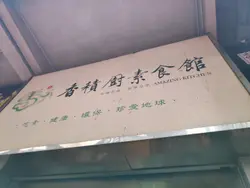 香積廚素食館
AMAZING KITCHEN
健康・環保・珍愛地球